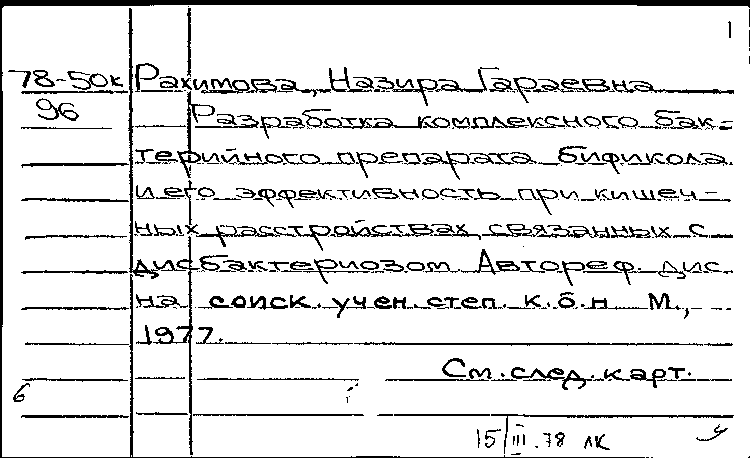 1
78-50к Рахимова, Назира Гараевна
96 Разработка комплексного бак-
терийного препарата бификола
и его эффективность при кишеч-
ных расстройствах, связанных с
дисбактериозом. Автореф. дис.
на соиск. учен. степ. к.б.н. М.,
1977.
См. след. карт.
б
15/III.78 лк